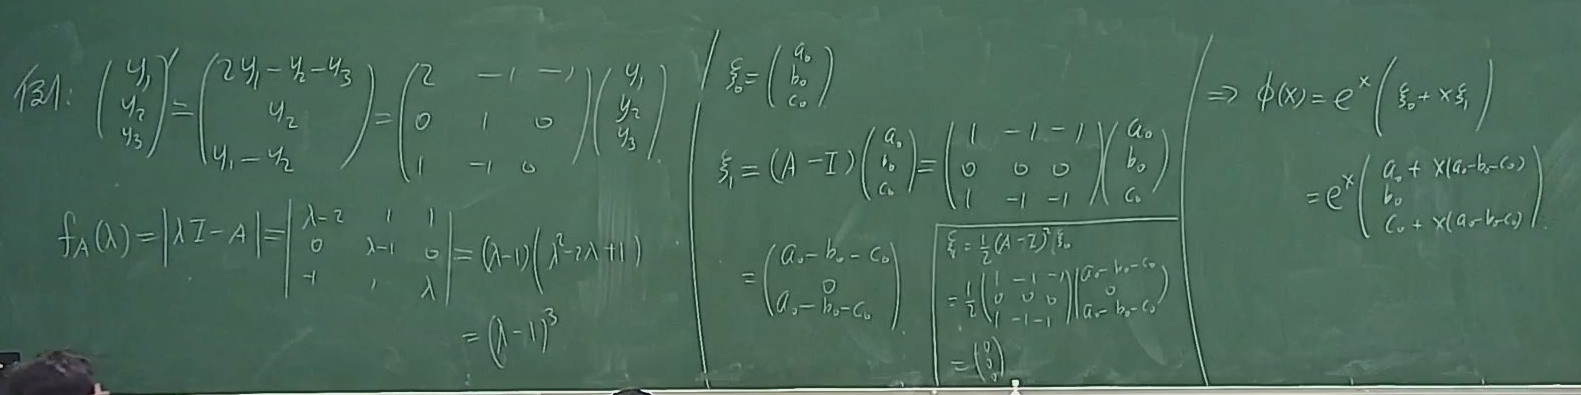 例1: \begin{pmatrix} y_1 \\ y_2 \\ y_3 \end{pmatrix}' = \begin{pmatrix} 2y_1 - y_2 - y_3 \\ y_2 \\ y_1 - y_2 \end{pmatrix} = \begin{pmatrix} 2 & -1 & -1 \\ 0 & 1 & 0 \\ 1 & -1 & 0 \end{pmatrix} \begin{pmatrix} y_1 \\ y_2 \\ y_3 \end{pmatrix}
f_A(λ) = |λI - A| = \begin{vmatrix} λ-2 & 1 & 1 \\ 0 & λ-1 & 0 \\ -1 & 1 & λ \end{vmatrix} = (λ-1)(λ^2-2λ+1)
= (λ-1)^3
ξ_0 = \begin{pmatrix} a_0 \\ b_0 \\ c_0 \end{pmatrix}
ξ_1 = (A - I) \begin{pmatrix} a_0 \\ b_0 \\ c_0 \end{pmatrix} = \begin{pmatrix} 1 & -1 & -1 \\ 0 & 0 & 0 \\ 1 & -1 & -1 \end{pmatrix} \begin{pmatrix} a_0 \\ b_0 \\ c_0 \end{pmatrix}
= \begin{pmatrix} a_0 - b_0 - c_0 \\ 0 \\ a_0 - b_0 - c_0 \end{pmatrix}
= \frac{1}{2}(A-I)^2 ξ_0
= \frac{1}{2} \begin{pmatrix} 1 & -1 & -1 \\ 0 & 0 & 0 \\ 1 & -1 & -1 \end{pmatrix} \begin{pmatrix} a_0 - b_0 - c_0 \\ 0 \\ a_0 - b_0 - c_0 \end{pmatrix}
= \begin{pmatrix} 0 \\ 0 \\ 0 \end{pmatrix}
⇒ φ(x) = e^x (ξ_0 + xξ_1)
= e^x \begin{pmatrix} a_0 + x(a_0-b_0-c_0) \\ b_0 \\ c_0 + x(a_0-b_0-c_0) \end{pmatrix}